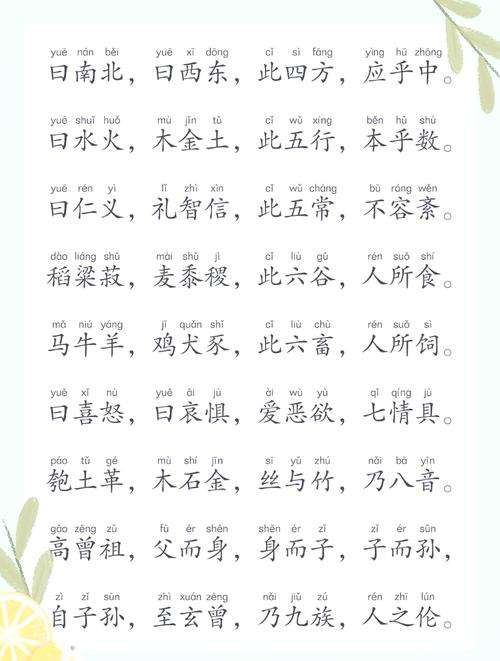 yuē nán běi yuē xī dōng cǐ sì fāng yìng hū zhōng
曰南北，曰西东，此四方，应乎中。
yuē shuǐ huǒ mù jīn tǔ cǐ wǔ xíng běn hū shù
曰水火，木金土，此五行，本乎数。
yuē rén yì lǐ zhì xìn cǐ wǔ cháng bù róng wěn
曰仁义，礼智信，此五常，不容紊。
dào liáng shū mài shǔ jì cǐ liù gǔ rén suǒ shí
稻梁菽，麦黍稷，此六谷，人所食。
mǎ niú yáng jī quǎn shǐ cǐ liù chù rén suǒ sì
马牛羊，鸡犬豕，此六畜，人所饲。
yuē xǐ nù yuē āi jù ài wù yù qī qíng jù
曰喜怒，曰哀惧，爱恶欲，七情具。
páo tǔ gé mù shí jīn sī yǔ zhú nǎi bā yīn
匏土革，木石金，丝与竹，乃八音。
gāo zēng zǔ fù ér shēn shēn ér zǐ zǐ ér sūn
高曾祖，父而身，身而子，子而孙，
zì zǐ sūn zhì xuán zēng nǎi jiǔ zú rén zhī lún
自子孙，至玄曾，乃九族，人之伦。